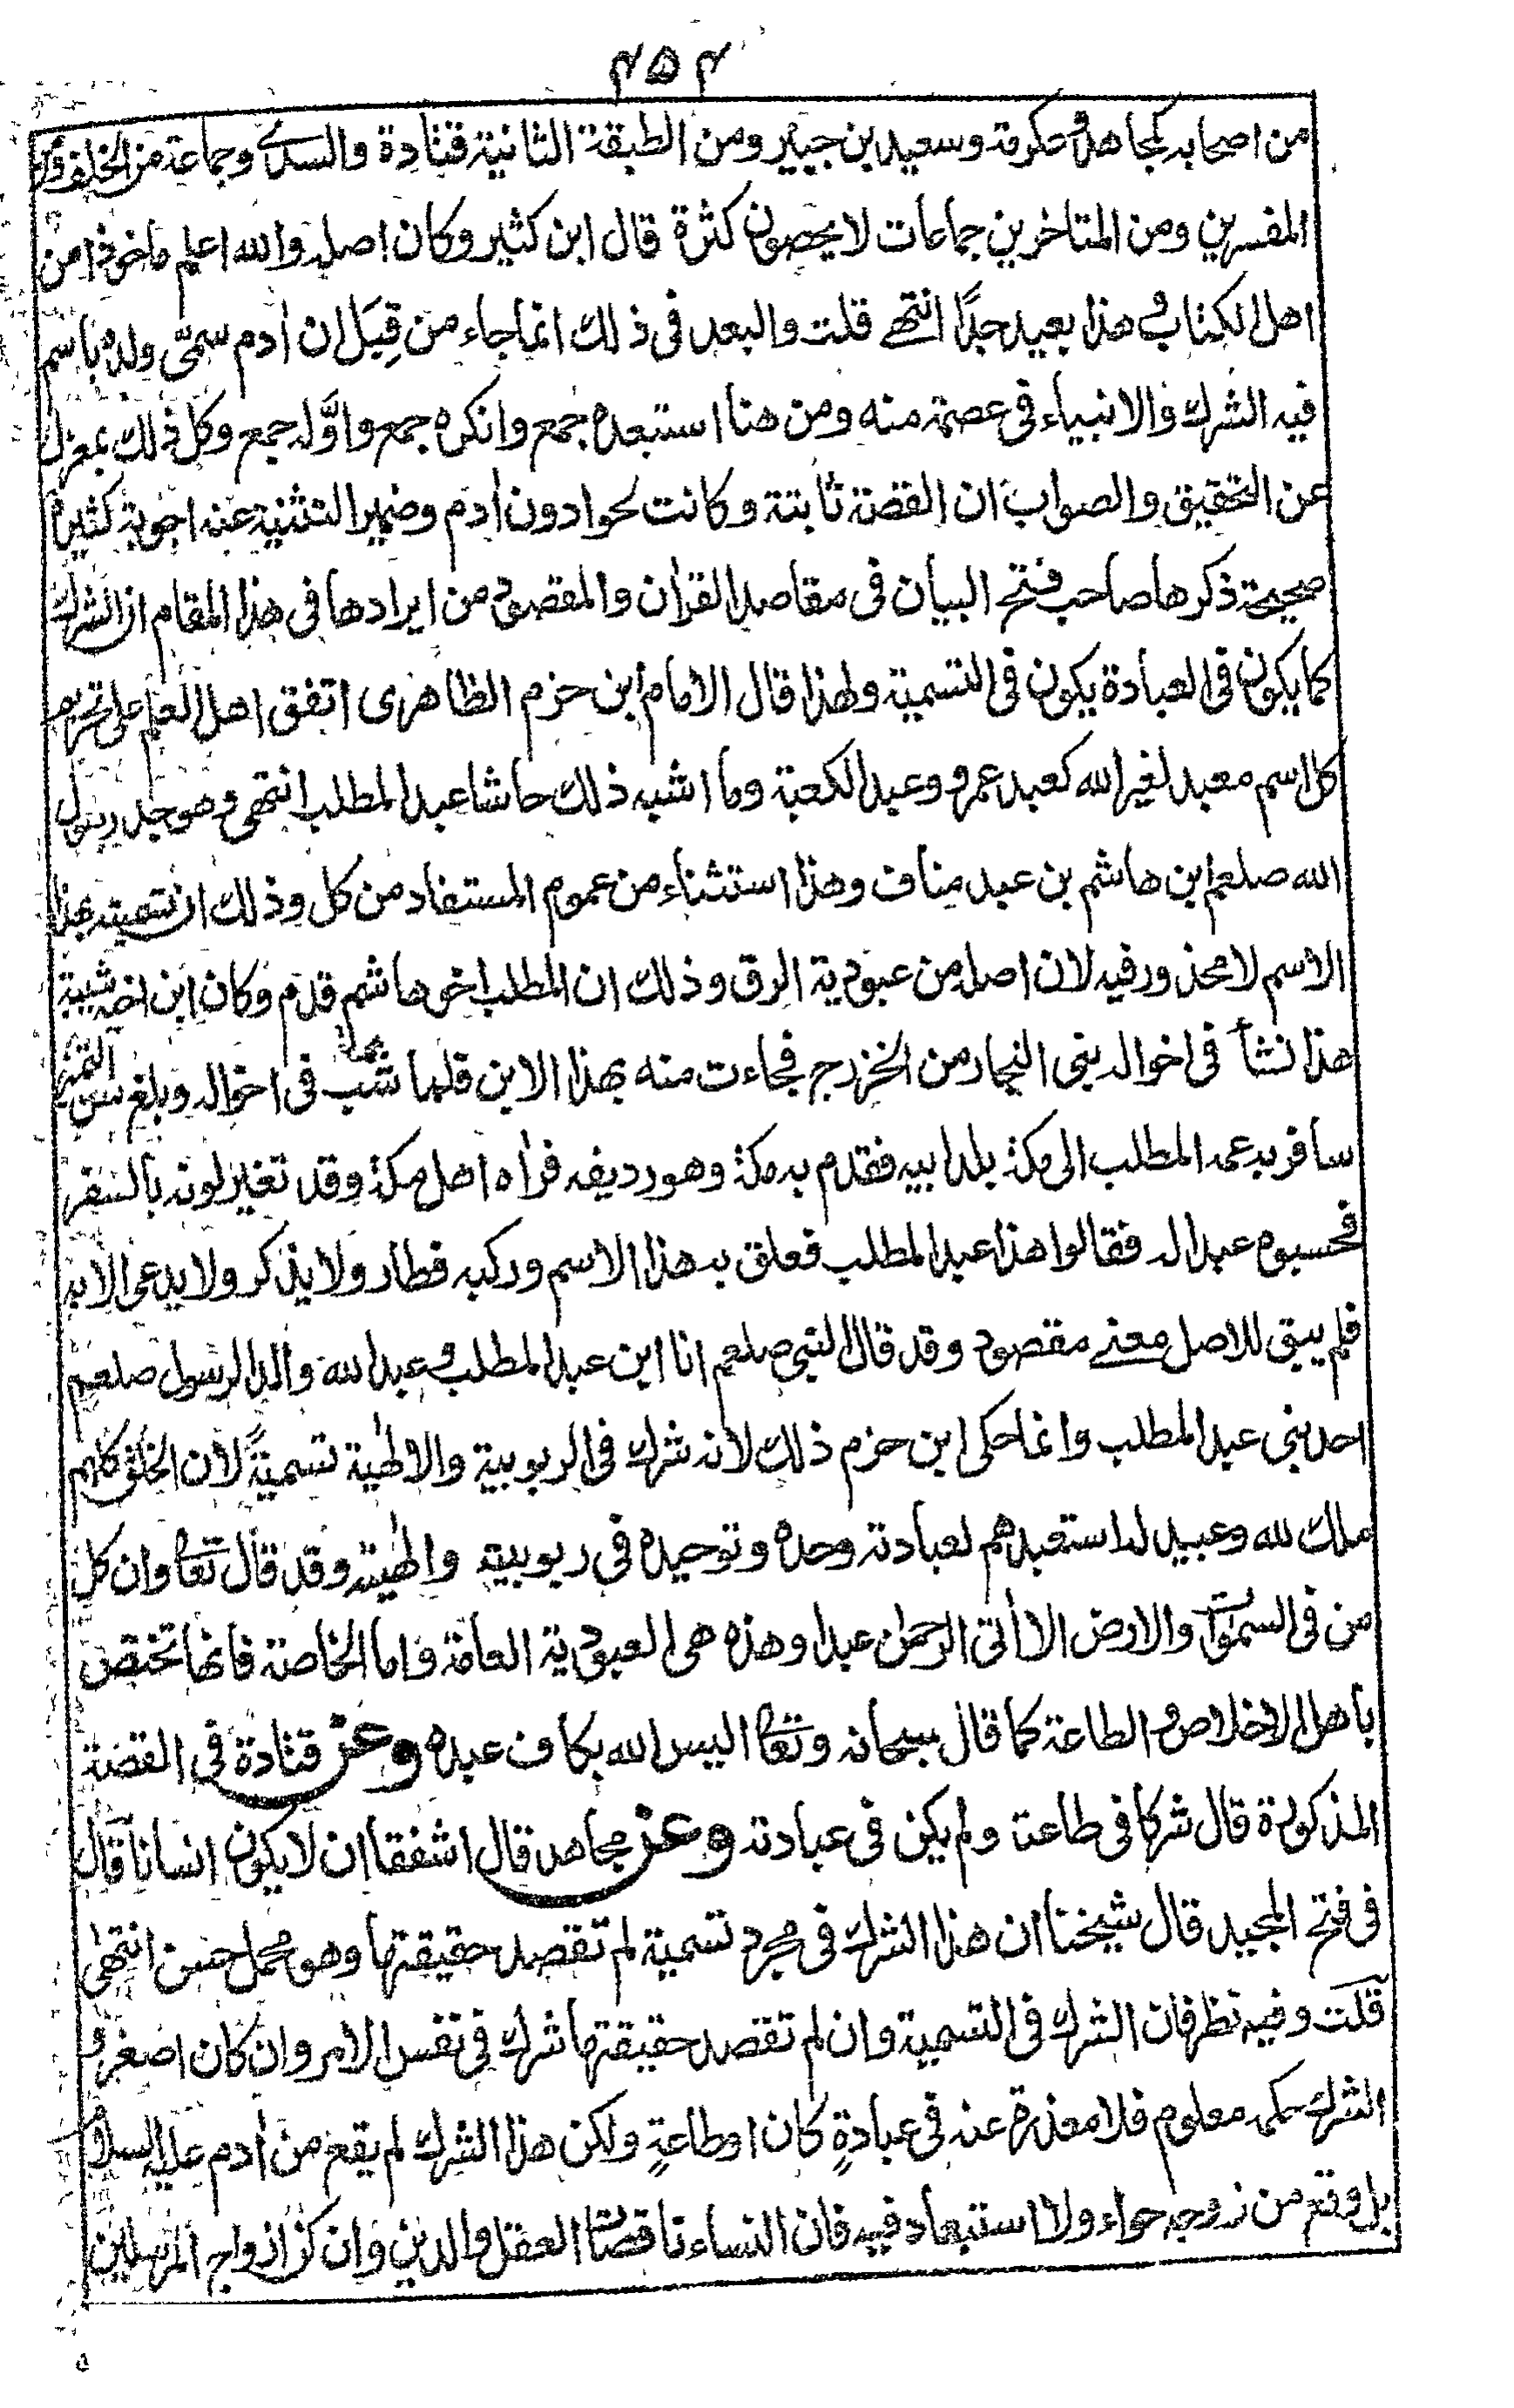 ۴۵۴
من اصحابه كمجاهد وعكرمة وسعيد بن جبير ومن الطبقة الثانية قتادة والسدى وجماعة من الخلف ومن
المفسرين ومن المتاخرين جماعات لا يحصون كثرة قال ابن كثير وكان اصله والله اعلم ماخوذا من
اهل الكتاب وهذا بعيد جدًا انتهے قلت والبعد فى ذلك انما جاء من قِبَل ان اٰدم سمّى ولده باسم
فيه الشرك والانبياء فى عصمة منه ومن هنا استبعده جمع وانكره جمع واوَّله جمع وكل ذلك بمعزل
عن التحقيق والصواب ان القصة ثابتة وكانت لحوا دون اٰدم وضمير التثنية عنه اجوبة كثيرة
صحيحة ذكرها صاحب فتح البيان فى مقاصد القراٰن والمقصود من ايرادها فى هذا المقام ان الشرك
كما يكون فى العبادة يكون فى التسمية ولهذا قال الامام ابن حزم الظاهرى اتفق اهل العلم على تحريم
كل اسم معبد لغير الله كعبد عمرو وعبد الكعبة وما اشبه ذلك حاشا عبد المطلب انتهى وهو جد رسول
الله صلعم ابن هاشم بن عبد مناف وهذا استثناء من عموم المستفاد من كل وذلك ان تسميته بهذا
الاسم لا محذور فيه لان اصله من عبودية الرق وذلك ان المطلب اخو هاشم قدم وكان ابن اخيه شيبة
هذا نشأ فى اخواله بنى النجار من الخزرج فجاءت منه بهذا الابن فلما شب فى اخواله وبلغ سن التميز
سافر به عمه المطلب الى مكة بلد ابيه فقدم به مكة وهو رديفه فراٰه اهل مكة وقد تغير لونه بالسفر
فحسبوه عبدا له فقالوا هذا عبد المطلب فعلق به هذا الاسم وركبه فطار ولا يذكر ولا يدعى الا به
فلم يبق للاصل معنے مقصود وقد قال النبي صلعم انا ابن عبد المطلب وعبد الله والد الرسول صلعم
احد بنى عبد المطلب وانما حكى ابن حزم ذلك لانه شرك فى الربوبية والالٰهية تسميةً لان الخلق كلهم
ملك لله وعبيد له استعبدهم لعبادته وحده وتوحيده فى ربوبيته والٰهيته وقد قال تعا وان كل
من فى السمٰوٰت والارض الا اٰتى الرحمٰن عبدا وهذه هى العبودية العامة واما الخاصة فانها تختص
باهل الاخلاص والطاعة كما قال سبحانه وتعا اليس الله بكاف عبده وعن قتادة فى القصة
المذكورة قال شركا فى طاعته ولم يكن فى عبادته وعن مجاهد قال اشفقا ان لا يكون انسانا قال
فى فتح المجيد قال شيخنا ان هذا الشرك فى مجرد تسمية لم تقصد حقيقتها وهو محمل حسن انتهٰى
قلت وفيه نظر فان الشرك فى التسمية وان لم تقصد حقيقتها شرك فى نفس الامر وان كان اصغر و
الشرك حكمه معلوم فلا معذرة عنه فى عبادةٍ كان او طاعةٍ ولكن هذا الشرك لم يقع من اٰدم عليه السلام
بل وقع من زوجه حواء ولا استبعاد فيه فان النساء ناقصات العقل والدين وان كن ازواج المرسلين